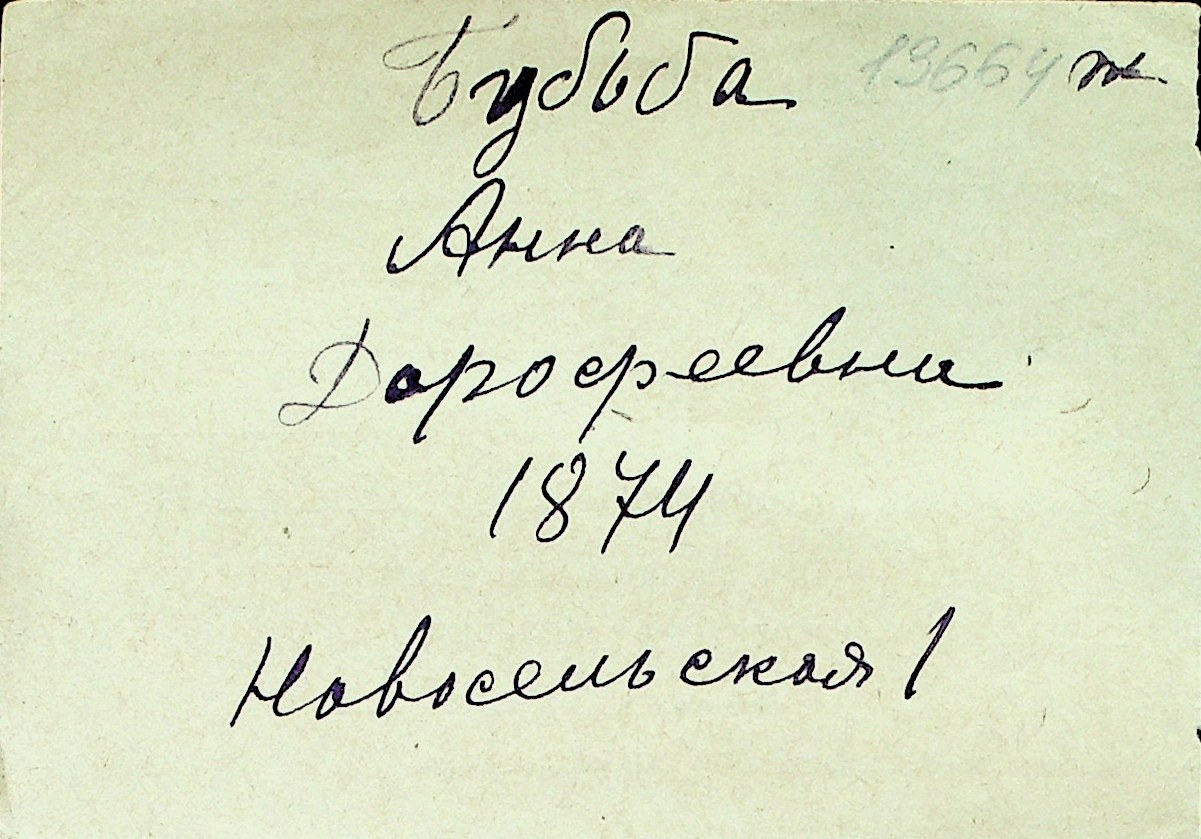 Бубыба 13664 ж
Анна
Дорофеевна
1874
Новосельская 1